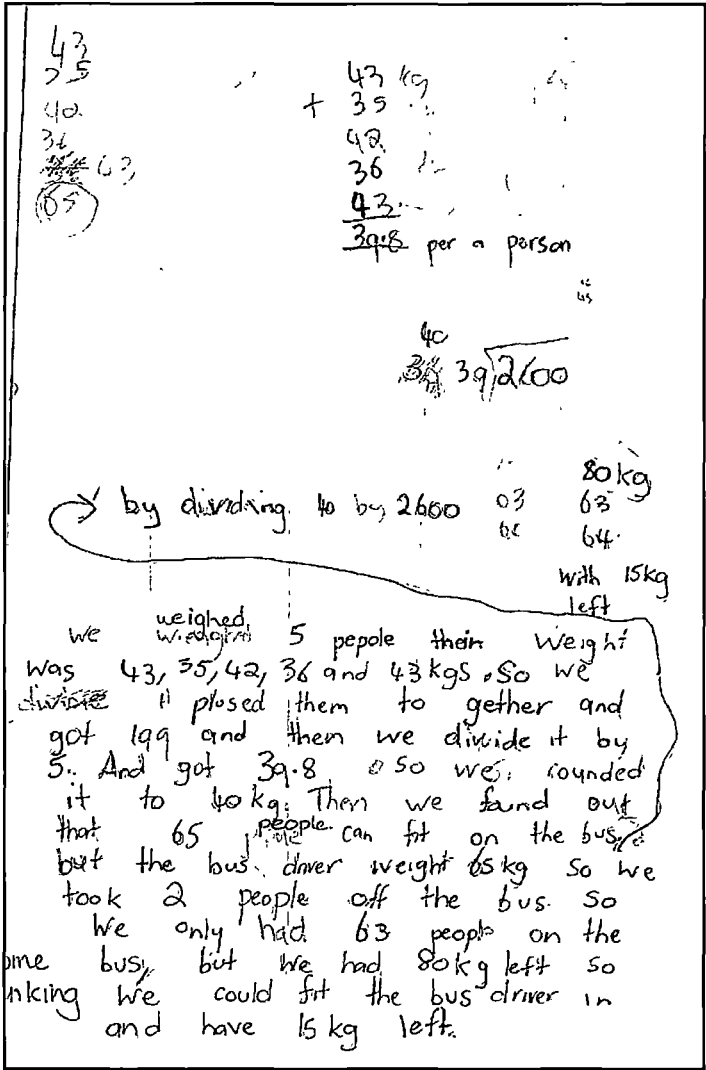 43
35
42
36
63
65
43 kg
+ 35
42
36
43
39.8 per a person
40
39 2600
by dividing 40 by 2600
63
80 kg
63
64
with 15kg
left
we weighed 5 pepole their weight
was 43, 35, 42, 36 and 43 kgs. So we
plused them to gether and
got 199 and them we divide it by
5. And got 39.8 so we rounded
it to 40 kg. Then we found out
that 65 people can fit on the bus
but the bus driver weight 65kg so we
took 2 people off the bus. So
we only had 63 people on the
bus, but we had 80kg left so
we could fit the bus driver in
and have 15 kg left.